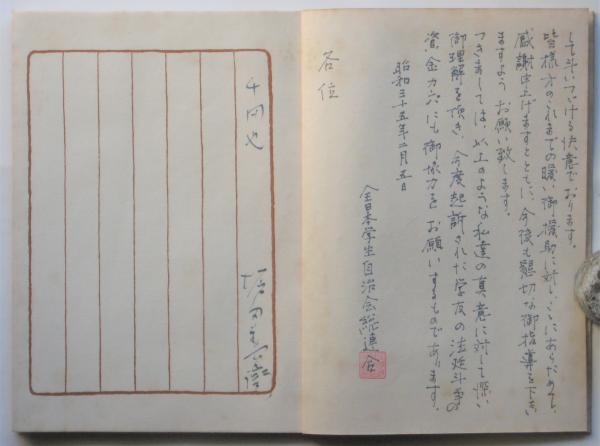 して斗いつづける決意であります。
皆様方のこれまでの暖い御援助に対し、ここにあらためて、
感謝申上げますとともに、今後も懇切な御指導を下さい
ますよう お願い致します。
つきましては、以上のような私達の真意に対して深い
御理解を頂き、今度起訴された学友の法廷斗争の
資金カンパにも御協力を お願いするものであります。
昭和三十五年二月五日
全日本学生自治会総連合
各位
千円也